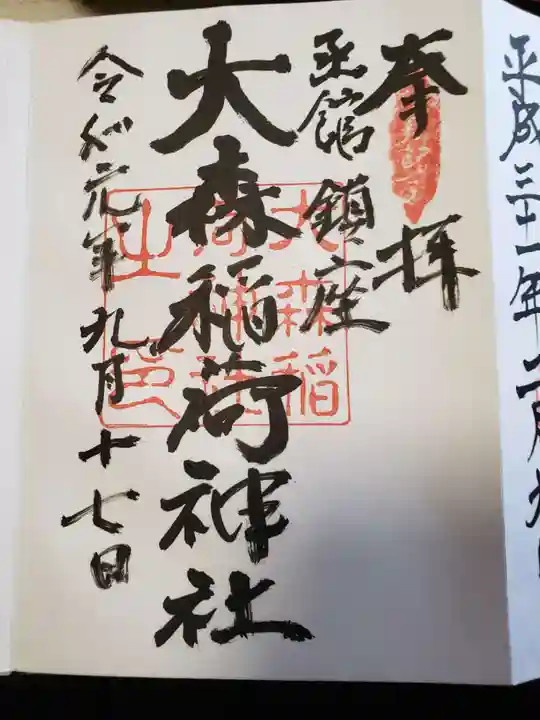 平成三十一年二月九日
奉拝
函館鎮座
大森稲荷神社
令和元年九月十七日
大森稲
荷神社
之